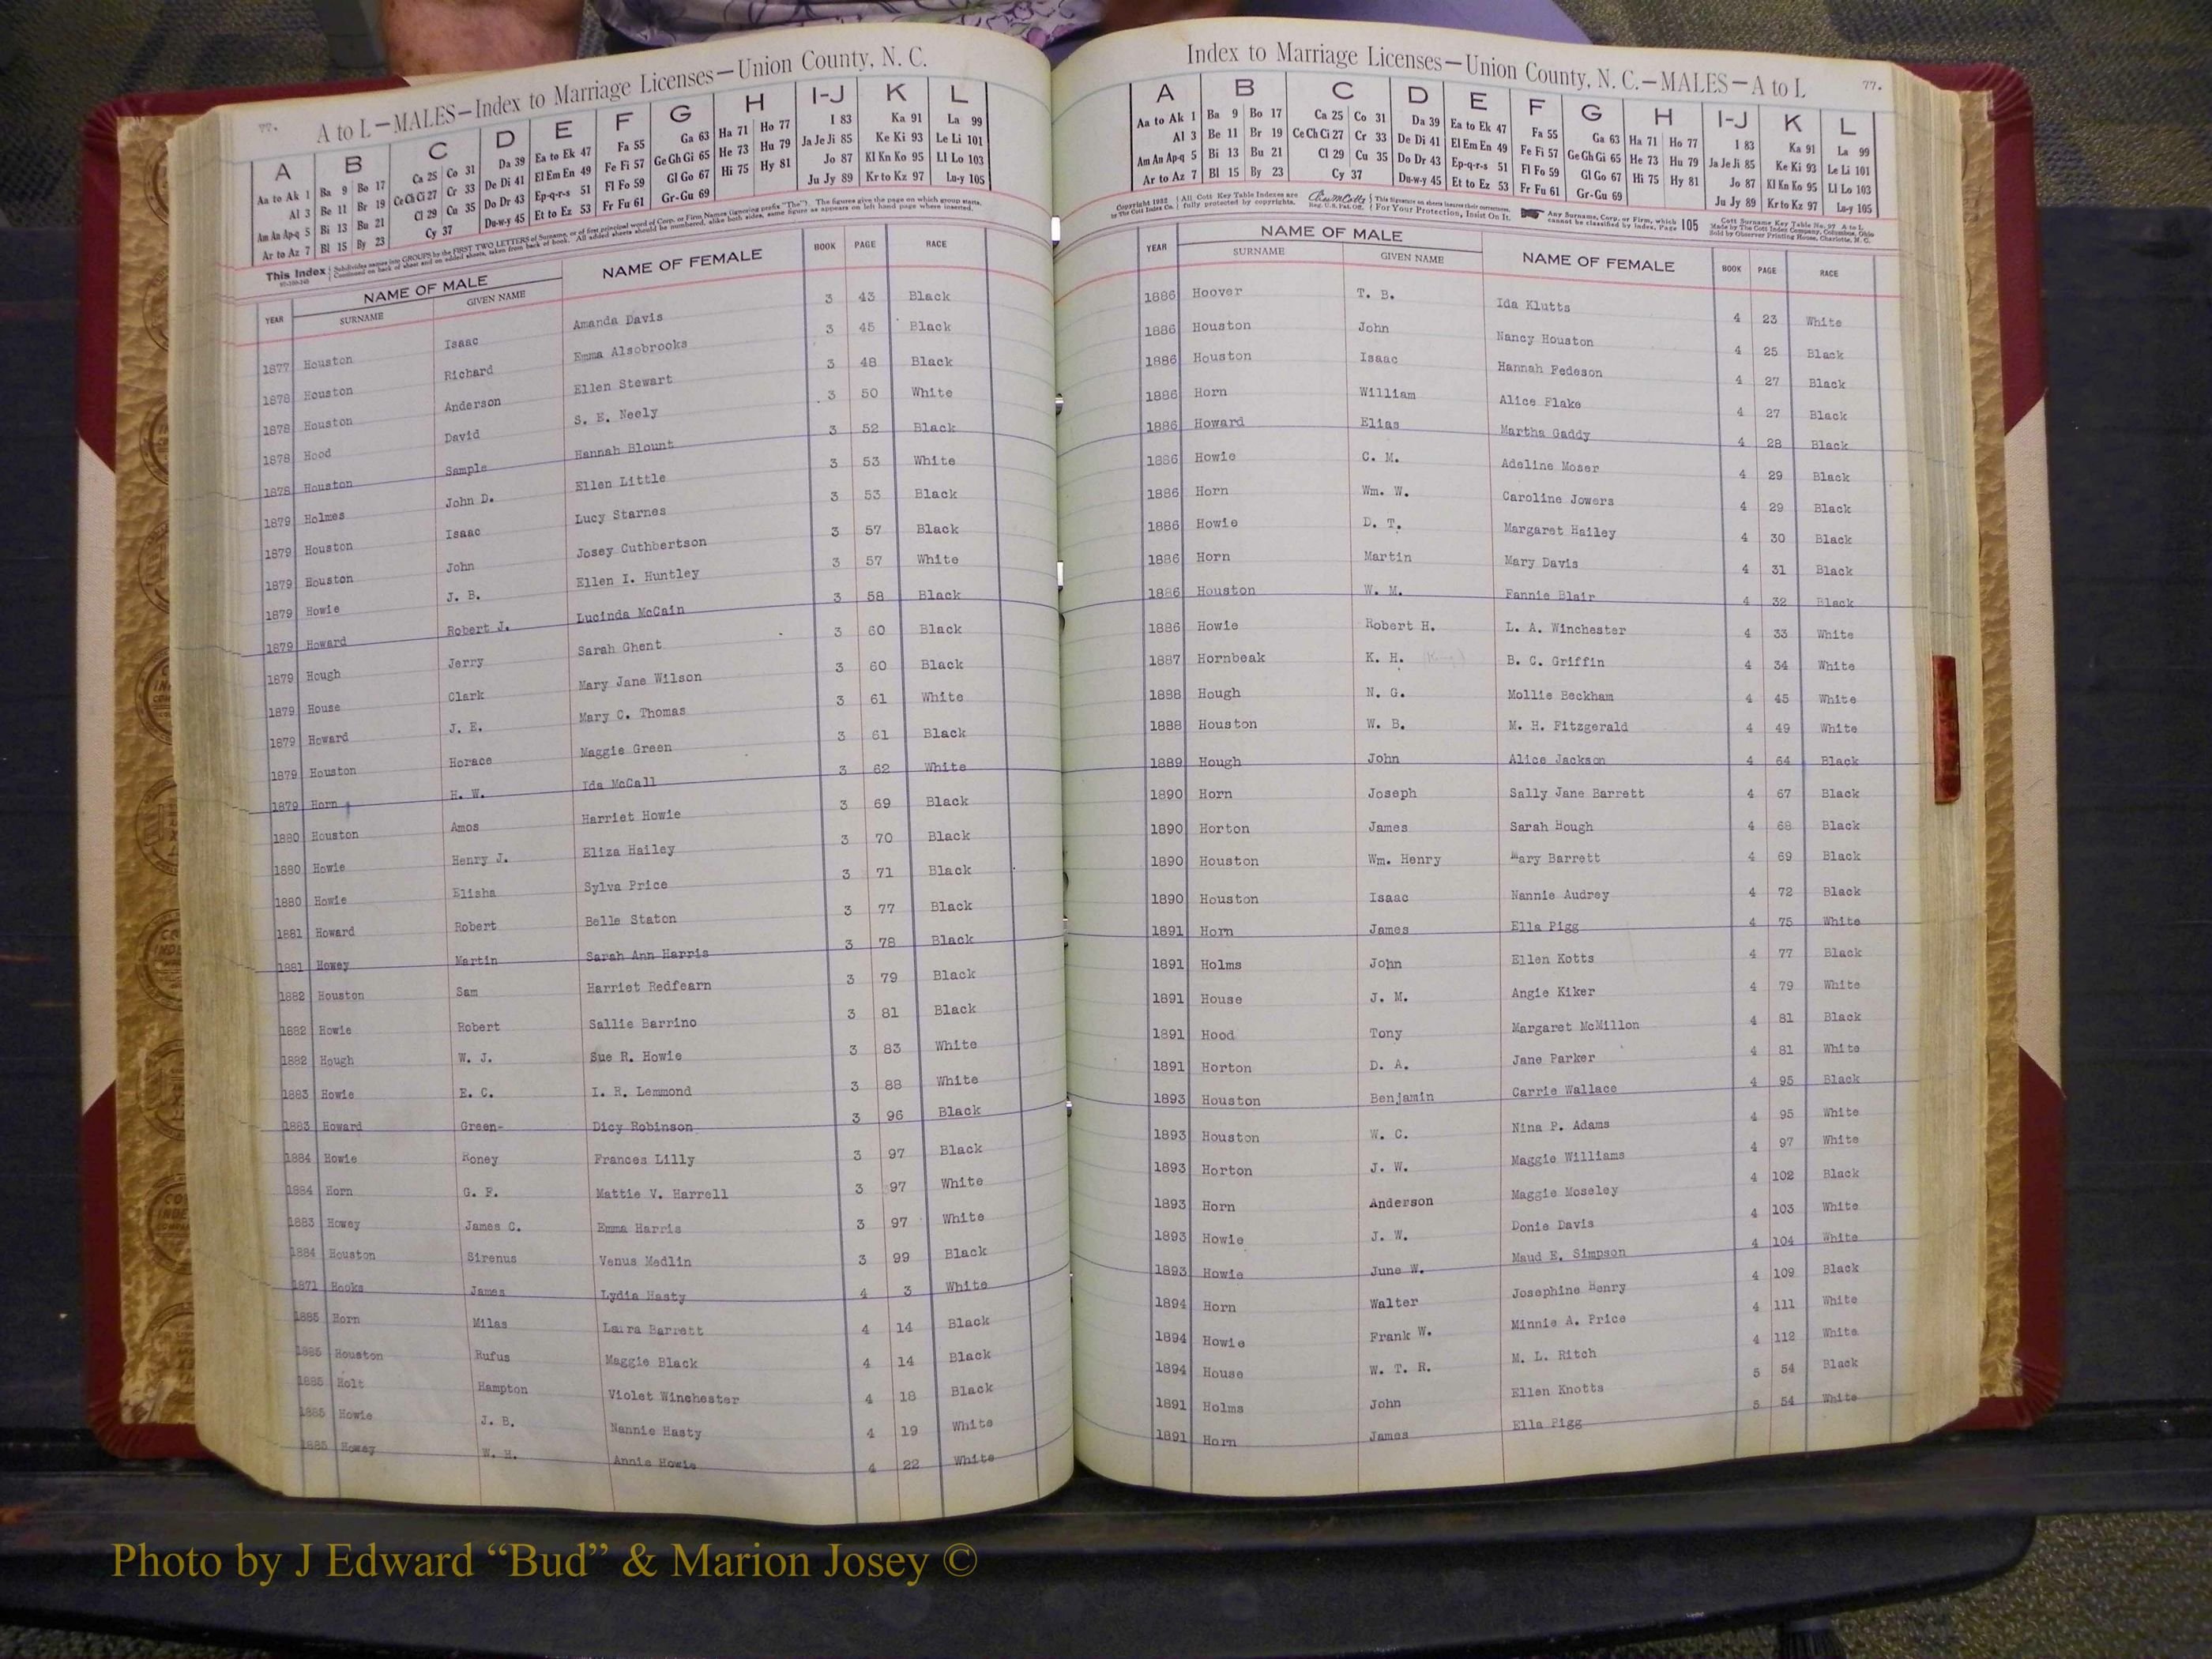 77.
A to L—MALES—Index to Marriage Licenses—Union County, N. C.
A B C D E F G H I-J K L
Aa to Ak 1 Ba 9 Bo 17 Ca 25 Co 31 Da 39 Ea to Ek 47 Fa 55 Ga 63 Ha 71 Ho 77 I 83 Ka 91 La 99
Al 3 Be 11 Br 19 Ce Ch Ci 27 Cr 33 De Di 41 El Em En 49 Fe Fi 57 Ge Gh Gi 65 He 73 Hu 79 Ja Je Ji 85 Ke Ki 93 Le Li 101
Am An Ap-q 5 Bi 13 Bu 21 Cl 29 Cu 35 Do Dr 43 Ep-q-r-s 51 Fl Fo 59 Gl Go 67 Hi 75 Hy 81 Jo 87 Kl Kn Ko 95 Ll Lo 103
Ar to Az 7 Bl 15 By 23 Cy 37 Du-w-y 45 Et to Ez 53 Fr Fu 61 Gr-Gu 69 Ju Jy 89 Kr to Kz 97 Lu-y 105
This Index Subdivides names into GROUPS by the FIRST TWO LETTERS of Surname, or of first principal word of Corp. or Firm Names (ignoring prefix "The"). The figures give the page on which group starts.
Continued on back of sheet and on added sheets, taken from back of book. All added sheets should be numbered, alike both sides, same figure as appears on left hand page where inserted.
YEAR NAME OF MALE NAME OF FEMALE BOOK PAGE RACE
SURNAME GIVEN NAME
1877 Houston Isaac Amanda Davis 3 43 Black
1878 Houston Richard Emma Alsobrooks 3 45 Black
1878 Houston Anderson Ellen Stewart 3 48 Black
1878 Hood David S. E. Neely 3 50 White
1878 Houston Sample Hannah Blount 3 52 Black
1879 Holmes John D. Ellen Little 3 53 White
1879 Houston Isaac Lucy Starnes 3 53 Black
1879 Houston John Josey Cuthbertson 3 57 Black
1879 Howie J. B. Ellen I. Huntley 3 57 White
1879 Howard Robert J. Lucinda McCain 3 58 Black
1879 Hough Jerry Sarah Ghent 3 60 Black
1879 House Clark Mary Jane Wilson 3 60 Black
1879 Howard J. E. Mary C. Thomas 3 61 White
1879 Houston Horace Maggie Green 3 61 Black
1879 Horn H. W. Ida McCall 3 62 White
1880 Houston Amos Harriet Howie 3 69 Black
1880 Howie Henry J. Eliza Hailey 3 70 Black
1880 Howie Elisha Sylva Price 3 71 Black
1881 Howard Robert Belle Staton 3 77 Black
1881 Howey Martin Sarah Ann Harris 3 78 Black
1882 Houston Sam Harriet Redfearn 3 79 Black
1882 Howie Robert Sallie Barrino 3 81 Black
1882 Hough W. J. Sue R. Howie 3 83 White
1883 Howie E. C. I. R. Lemmond 3 88 White
1883 Howard Green- Dicy Robinson 3 96 Black
1884 Howie Roney Frances Lilly 3 97 Black
1884 Horn G. F. Mattie V. Harrell 3 97 White
1883 Howey James C. Emma Harris 3 97 White
1884 Houston Sirenus Venus Medlin 3 99 Black
1871 Hooks James Lydia Hasty 4 3 White
1885 Horn Milas Laura Barrett 4 14 Black
1885 Houston Rufus Maggie Black 4 14 Black
1885 Holt Hampton Violet Winchester 4 18 Black
1885 Howie J. B. Nannie Hasty 4 19 White
1885 Howey W. H. Annie Howie 4 22 White
Index to Marriage Licenses—Union County, N. C.—MALES—A to L 77.
A B C D E F G H I-J K L
Aa to Ak 1 Ba 9 Bo 17 Ca 25 Co 31 Da 39 Ea to Ek 47 Fa 55 Ga 63 Ha 71 Ho 77 I 83 Ka 91 La 99
Al 3 Be 11 Br 19 Ce Ch Ci 27 Cr 33 De Di 41 El Em En 49 Fe Fi 57 Ge Gh Gi 65 He 73 Hu 79 Ja Je Ji 85 Ke Ki 93 Le Li 101
Am An Ap-q 5 Bi 13 Bu 21 Cl 29 Cu 35 Do Dr 43 Ep-q-r-s 51 Fl Fo 59 Gl Go 67 Hi 75 Hy 81 Jo 87 Kl Kn Ko 95 Ll Lo 103
Ar to Az 7 Bl 15 By 23 Cy 37 Du-w-y 45 Et to Ez 53 Fr Fu 61 Gr-Gu 69 Ju Jy 89 Kr to Kz 97 Lu-y 105
Copyright 1922 by The Cott Index Co. All Cott Key Table Indexes are fully protected by copyrights. Reg. U. S. Pat. Off. This Signature on sheets insures their correctness. For Your Protection, Insist On It. Any Surname, Corp. or Firm, which cannot be classified by Index, Page 105 Cott Surname Key Table No. 97 A to L Made by The Cott Index Company, Columbus, Ohio Sold by Observer Printing House, Charlotte, N. C.
YEAR NAME OF MALE NAME OF FEMALE BOOK PAGE RACE
SURNAME GIVEN NAME
1886 Hoover T. B. Ida Klutts 4 23 White
1886 Houston John Nancy Houston 4 25 Black
1886 Houston Isaac Hannah Fedeson 4 27 Black
1886 Horn William Alice Flake 4 27 Black
1886 Howard Elias Martha Gaddy 4 28 Black
1886 Howie C. M. Adeline Moser 4 29 Black
1886 Horn Wm. W. Caroline Jowers 4 29 Black
1886 Howie D. T. Margaret Hailey 4 30 Black
1886 Horn Martin Mary Davis 4 31 Black
1886 Houston W. M. Fannie Blair 4 32 Black
1886 Howie Robert H. L. A. Winchester 4 33 White
1887 Hornbeak K. H. B. C. Griffin 4 34 White
1888 Hough N. G. Mollie Beckham 4 45 White
1888 Houston W. B. M. H. Fitzgerald 4 49 White
1889 Hough John Alice Jackson 4 64 Black
1890 Horn Joseph Sally Jane Barrett 4 67 Black
1890 Horton James Sarah Hough 4 68 Black
1890 Houston Wm. Henry Mary Barrett 4 69 Black
1890 Houston Isaac Nannie Audrey 4 72 Black
1891 Horn James Ella Pigg 4 75 White
1891 Holms John Ellen Kotts 4 77 Black
1891 House J. M. Angie Kiker 4 79 White
1891 Hood Tony Margaret McMillon 4 81 Black
1891 Horton D. A. Jane Parker 4 81 White
1893 Houston Benjamin Carrie Wallace 4 95 Black
1893 Houston W. C. Nina P. Adams 4 95 White
1893 Horton J. W. Maggie Williams 4 97 White
1893 Horn Anderson Maggie Moseley 4 102 Black
1893 Howie J. W. Donie Davis 4 103 White
1893 Howie June W. Maud E. Simpson 4 104 White
1894 Horn Walter Josephine Henry 4 109 Black
1894 Howie Frank W. Minnie A. Price 4 111 White
1894 House W. T. R. M. L. Ritch 4 112 White
1891 Holms John Ellen Knotts 5 54 Black
1891 Horn James Ella Pigg 5 54 White
Photo by J Edward “Bud” & Marion Josey ©